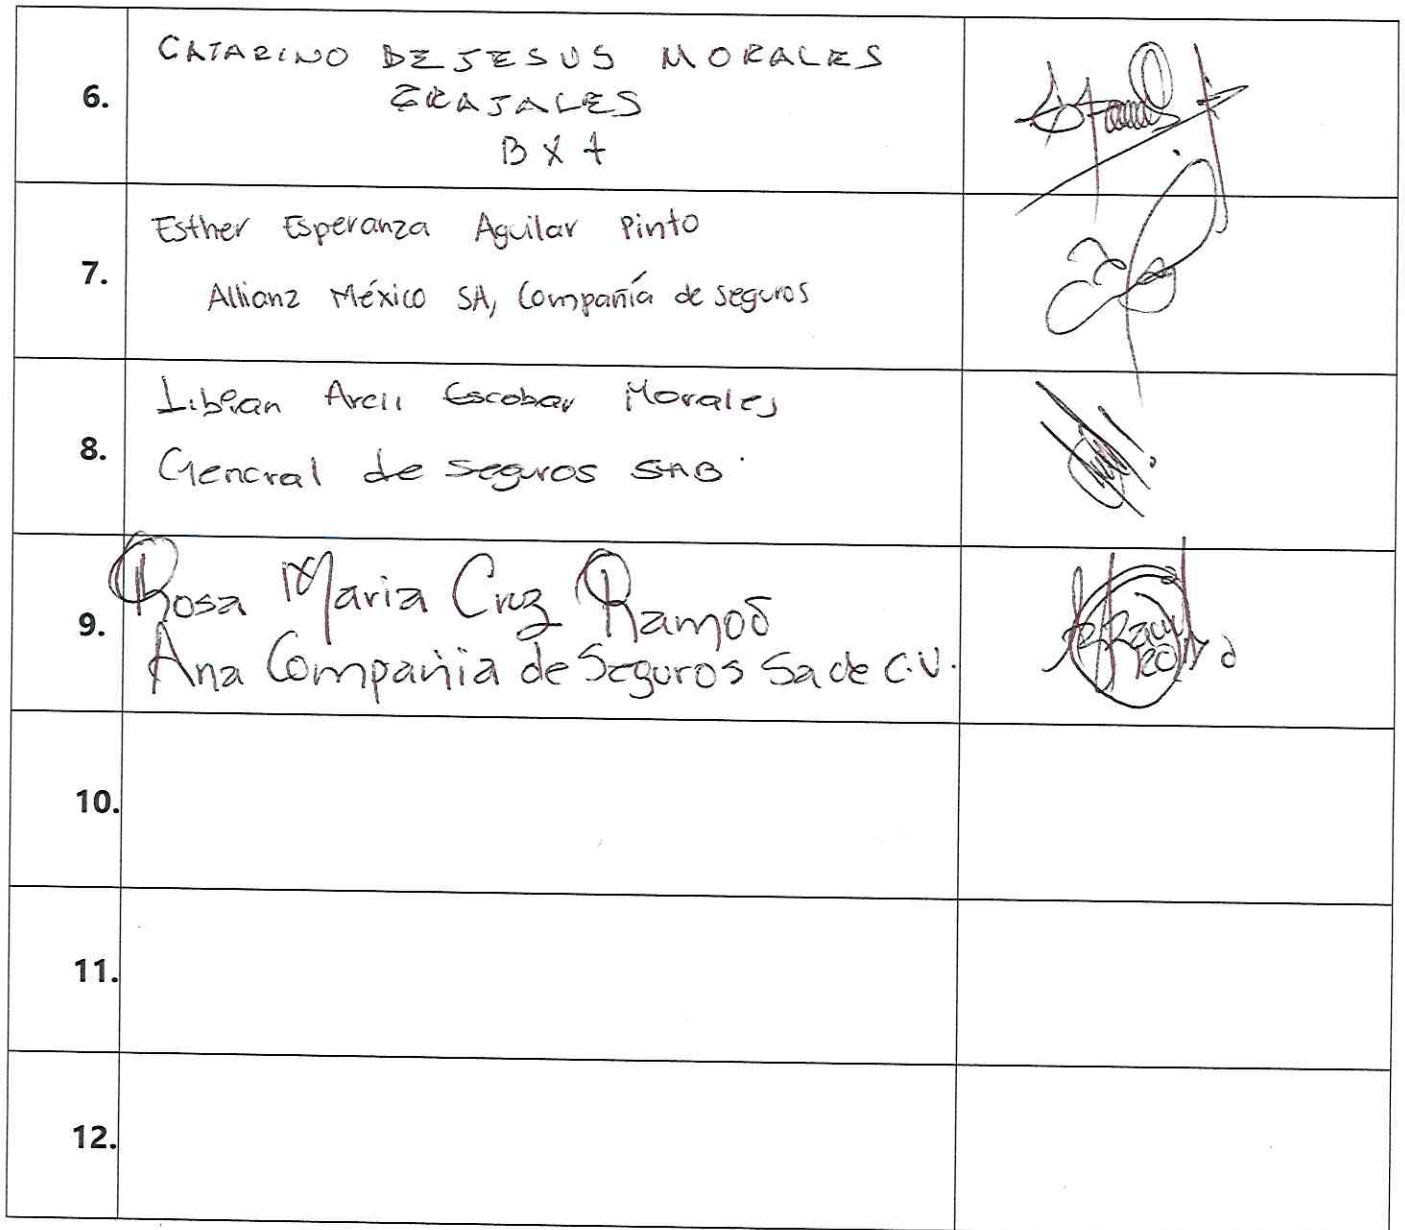 6.
CATARINO DE JESUS MORALES
GRAJALES
B X +
7.
Esther Esperanza Aguilar Pinto
Allianz México SA, Compañía de seguros
8.
Escobar Morales
General de seguros SAB.
9.
Rosa Maria Cruz Ramos
Ana Compañia de Seguros Sa de C.V.
10.
11.
12.